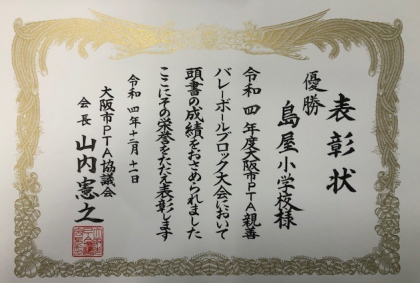 表彰状
優勝
島屋小学校様
令和四年度大阪市PTA親善
バレーボールブロック大会において
頭書の成績をおさめられました
ここにその栄誉をたたえ表彰します
令和四年十二月十一日
大阪市PTA協議会
会長 山内憲之